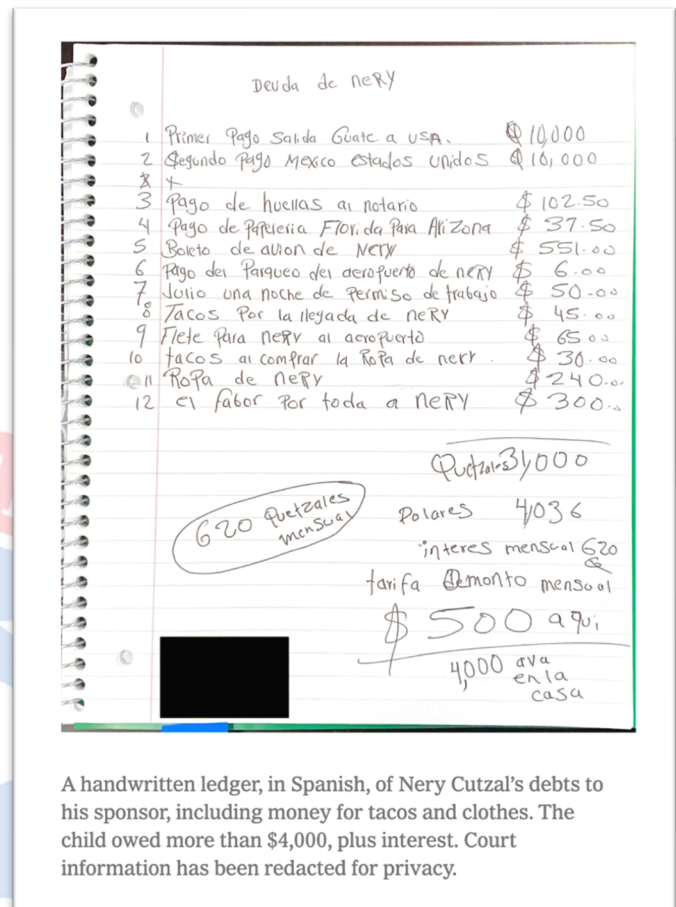 Deuda de neRy
1 Primer Pago Salida Guate a USA. Q 10,000
2 Segundo Pago Mexico estados unidos Q 10,000
3 Pago de huellas al notario $ 102.50
4 Pago de Papeleria Florida Para Arizona $ 37.50
5 Boleto de avion de Nery $ 551.00
6 Pago del Parqueo del aeropuerto de nery $ 6.00
7 Julio una noche de Permiso de trabajo $ 50.00
8 Tacos Por la llegada de neRy $ 45.00
9 Flete Para nery al aeropuerto $ 65.00
10 tacos al comprar la Ropa de nery. $ 30.00
11 Ropa de neRy $ 240.00
12 el fabor Por toda a neRy $ 300.00
Quetzales 31,000
620 Quetzales mensual
Dolares 4,036
interes mensual 620
Q
tarifa monto mensual
$ 500 aqui
4,000
en la
casa
A handwritten ledger, in Spanish, of Nery Cutzal’s debts to
his sponsor, including money for tacos and clothes. The
child owed more than $4,000, plus interest. Court
information has been redacted for privacy.